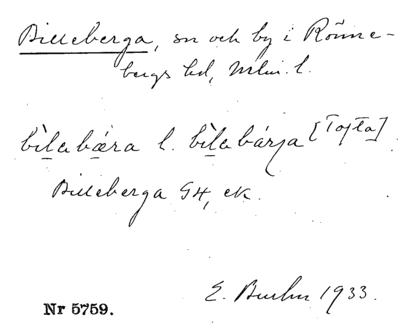 Billeberga, sn och by i Rönne-
bergs hd, Mlm. l.
bìlabæra l. bìlabárja [Tofta]
Billeberga GH, ek.
E. 1933.
Nr 5759.